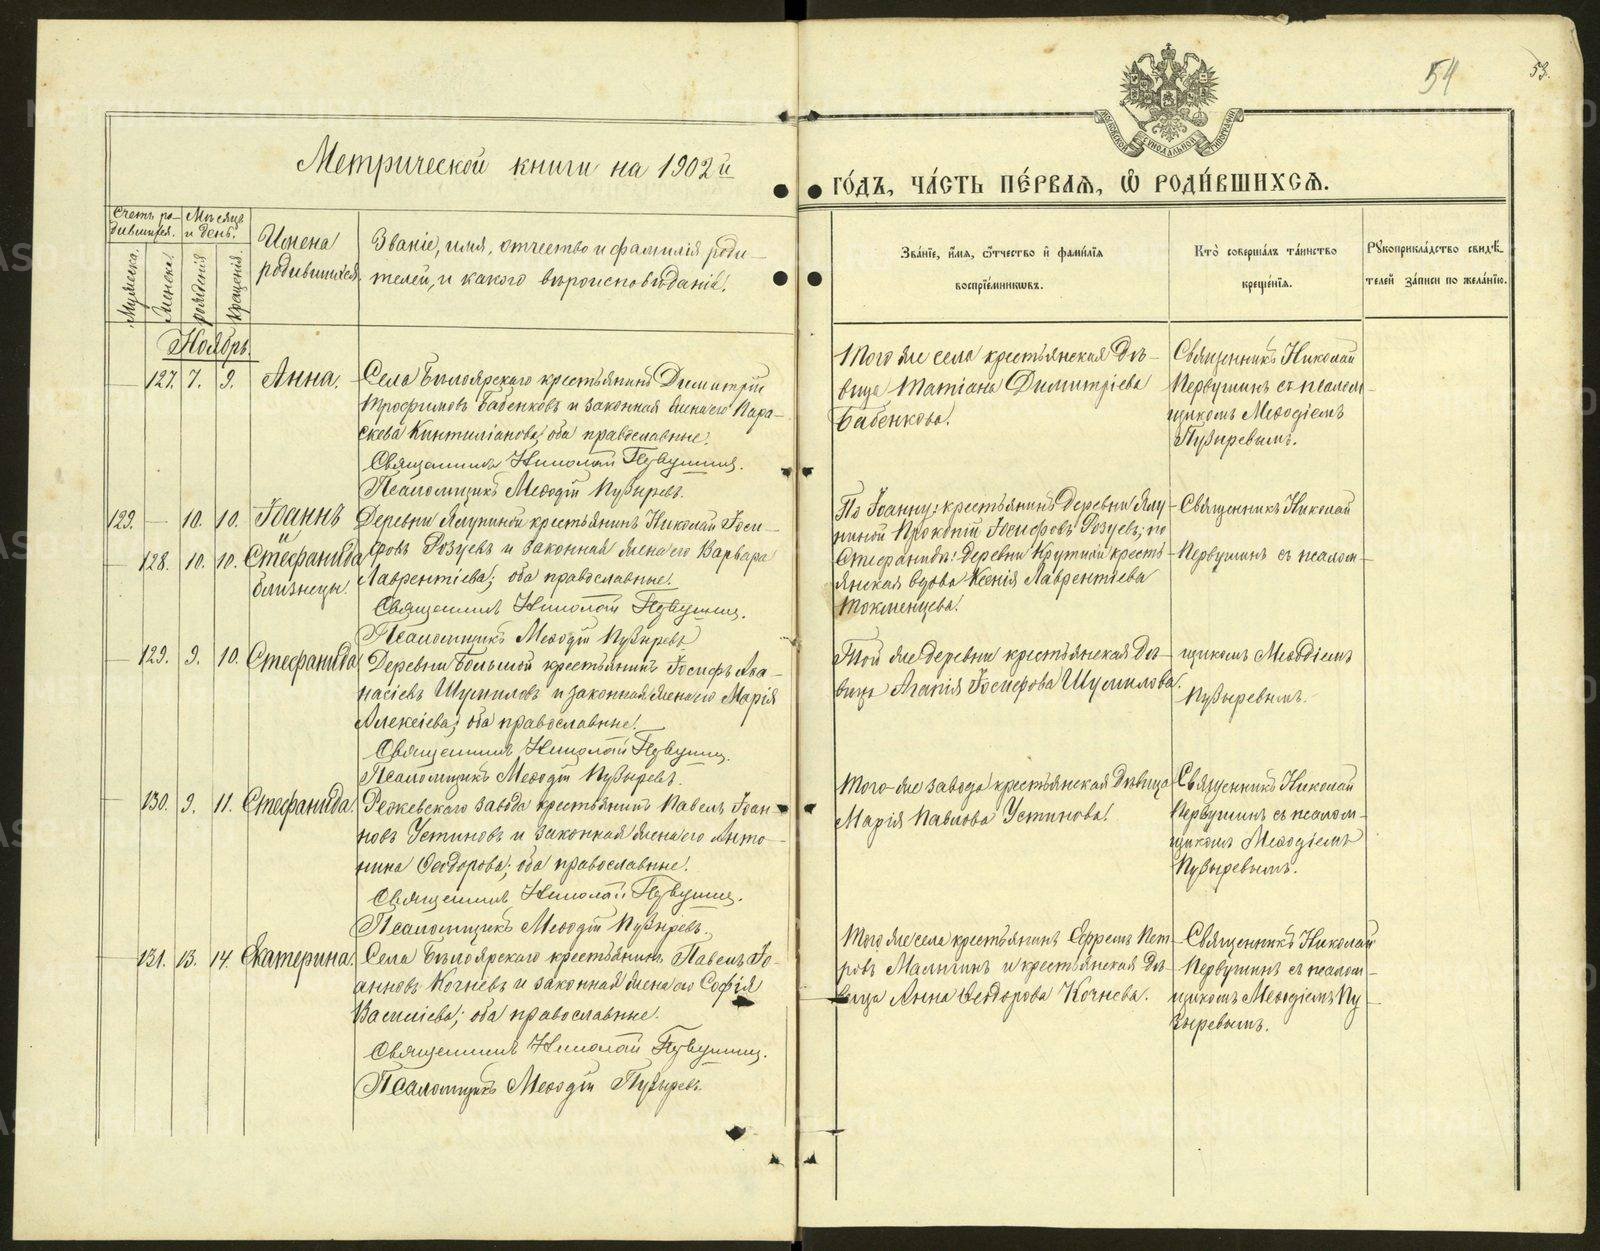 54
53.
Метрической книги на 1902 й
го́дъ, ча́сть пе́рваѧ, ѡ҆ роди́вшихсѧ.
Счетъ ро-
дившихся.
Мѣсяцъ
и день.
Мужеска.
Женска.
рожденія
крещенія
Имена
родившихся.
Званіе, имя, отчество и фамилія роди-
телей, и какого вѣроисповѣданія.
Зва́нїе, и҆́мѧ, ѻ҆́тчество и҆ фами́лїѧ
воспрїе́мникѡвъ.
Кто̀ соверша́лъ та́инство
креще́нїѧ.
Рꙋкоприкла́дство свидѣ́-
телей за́писи по жела́нїю.
Ноябрь.
127. 7. 9. Анна.
Села Бѣлоярскаго крестьянинъ Димитрій
Трофимовъ Бабенковъ и законная жена его Пара-
скева Кинтиліанова; оба православные.
Священникъ Николай Первушинъ.
Псаломщикъ Меѳодій Пузыревъ.
Того же села крестьянская дѣ-
вица Татіана Димитріева
Бабенкова.
Священникъ Николай
Первушинъ съ псалом-
щикомъ Меѳодіемъ
Пузыревымъ.
129. — 10. 10. Іоаннъ
и
128. 10. 10. Стефанида
близнецы.
Деревни Ялуниной крестьянинъ Николай Іоси-
фовъ Розуевъ и законная жена его Варвара
Лаврентіева; оба православные.
Священникъ Николай Первушинъ.
Псаломщикъ Меѳодій Пузыревъ.
По Іоанну: крестьянинъ деревни Ялу-
ниной Прокопій Іосифовъ Розуевъ; по
Стефанидѣ: деревни Крутой кресть-
янская вдова Ксенія Лаврентіева
Токменцева.
Священникъ Николай
Первушинъ съ псалом-
129. 9. 10. Стефанида
Деревни Большой крестьянинъ Іосифъ Аѳа-
насіевъ Шумиловъ и законная жена его Марія
Алексіева; оба православные.
Священникъ Николай Первушинъ.
Псаломщикъ Меѳодій Пузыревъ.
Той же деревни крестьянская дѣ-
вица Агапія Іосифова Шумилова.
щикомъ Меѳодіемъ
Пузыревымъ.
130. 9. 11. Стефанида.
Режевскаго завода крестьянинъ Павелъ Іоан-
новъ Устиновъ и законная жена его Анто-
нина Ѳеодорова; оба православные.
Священникъ Николай Первушинъ.
Псаломщикъ Меѳодій Пузыревъ.
Того-же завода крестьянская дѣвица
Марія Павлова Устинова.
Священникъ Николай
Первушинъ съ псалом-
щикомъ Меѳодіемъ
Пузыревымъ.
131. 13. 14. Екатерина.
Села Бѣлоярскаго крестьянинъ Павелъ Іо-
анновъ Кочневъ и законная жена его Софія
Василіева; оба православные.
Священникъ Николай Первушинъ.
Псаломщикъ Меѳодій Пузыревъ.
Того же села крестьянинъ Ефремъ Пет-
ровъ Малыгинъ и крестьянская дѣ-
вица Анна Ѳеодорова Кочнева.
Священникъ Николай
Первушинъ съ псалом-
щикомъ Меѳодіемъ Пу-
зыревымъ.